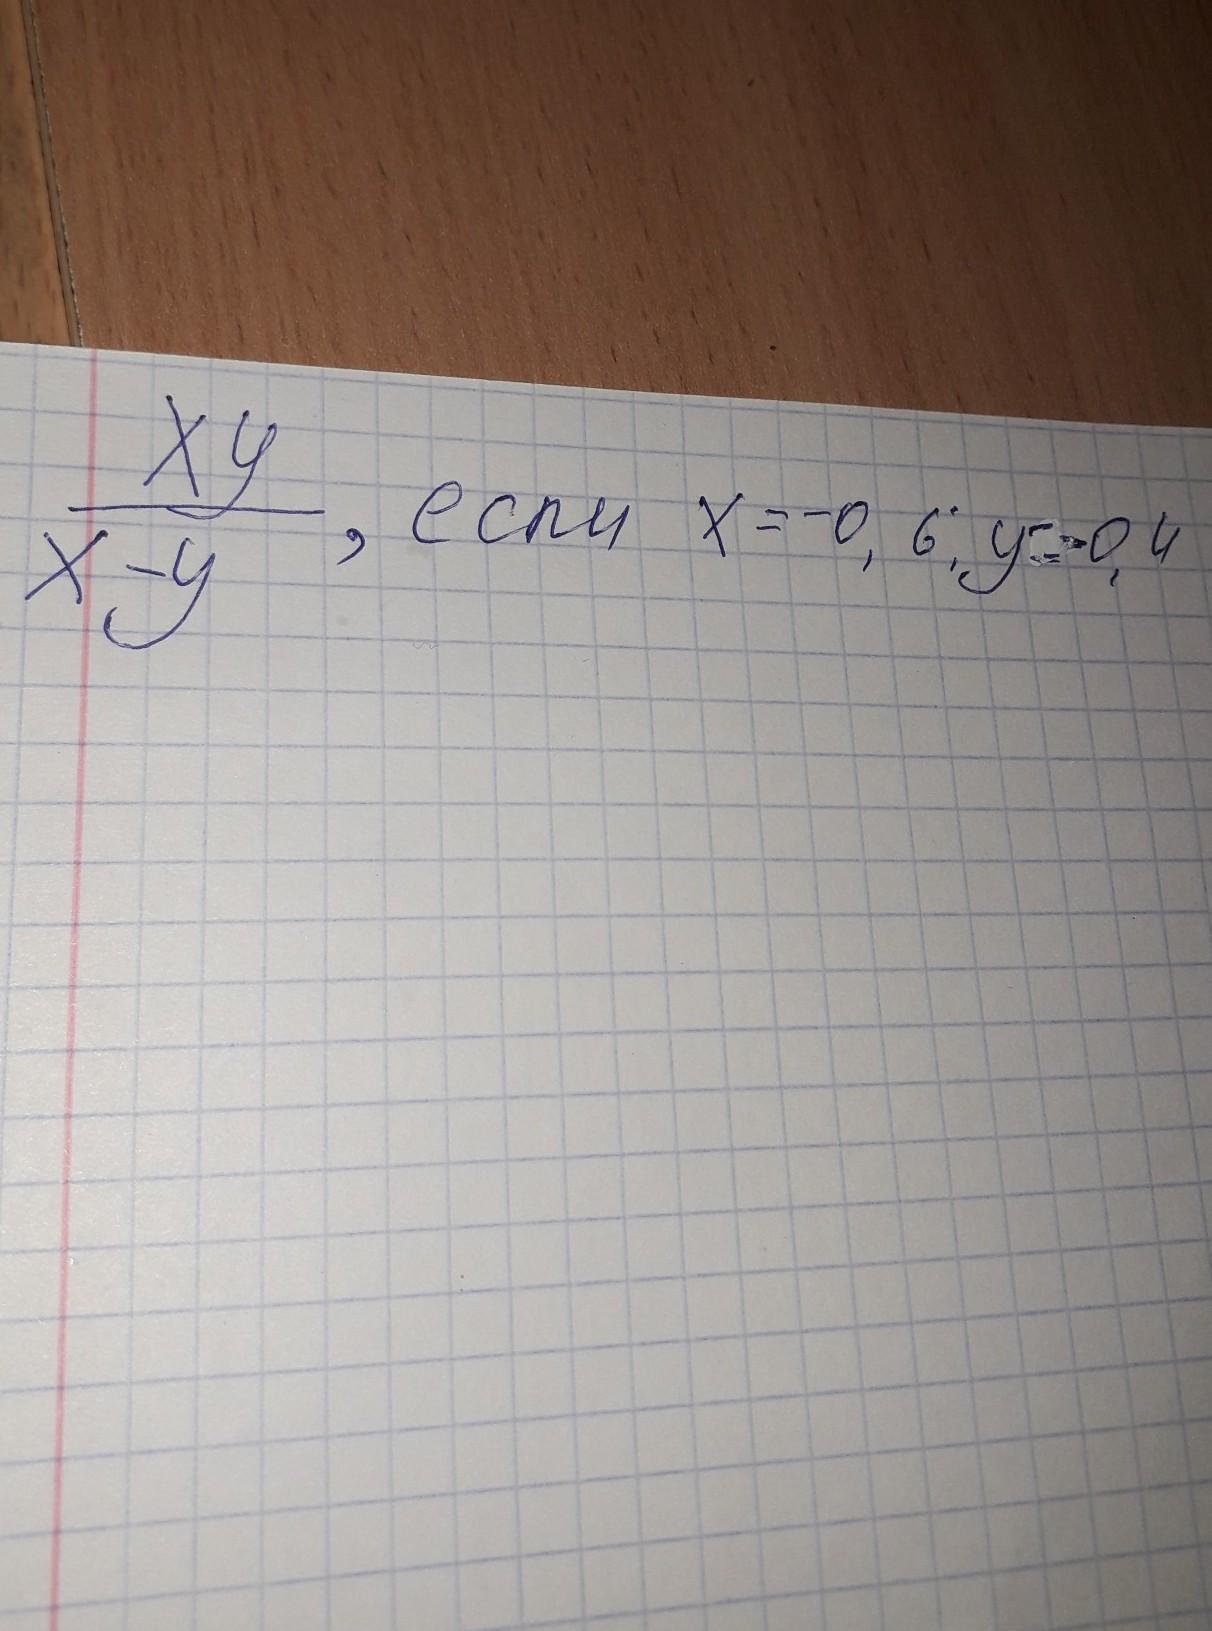 xy
x-y , если x=-0,6; y=-0,4